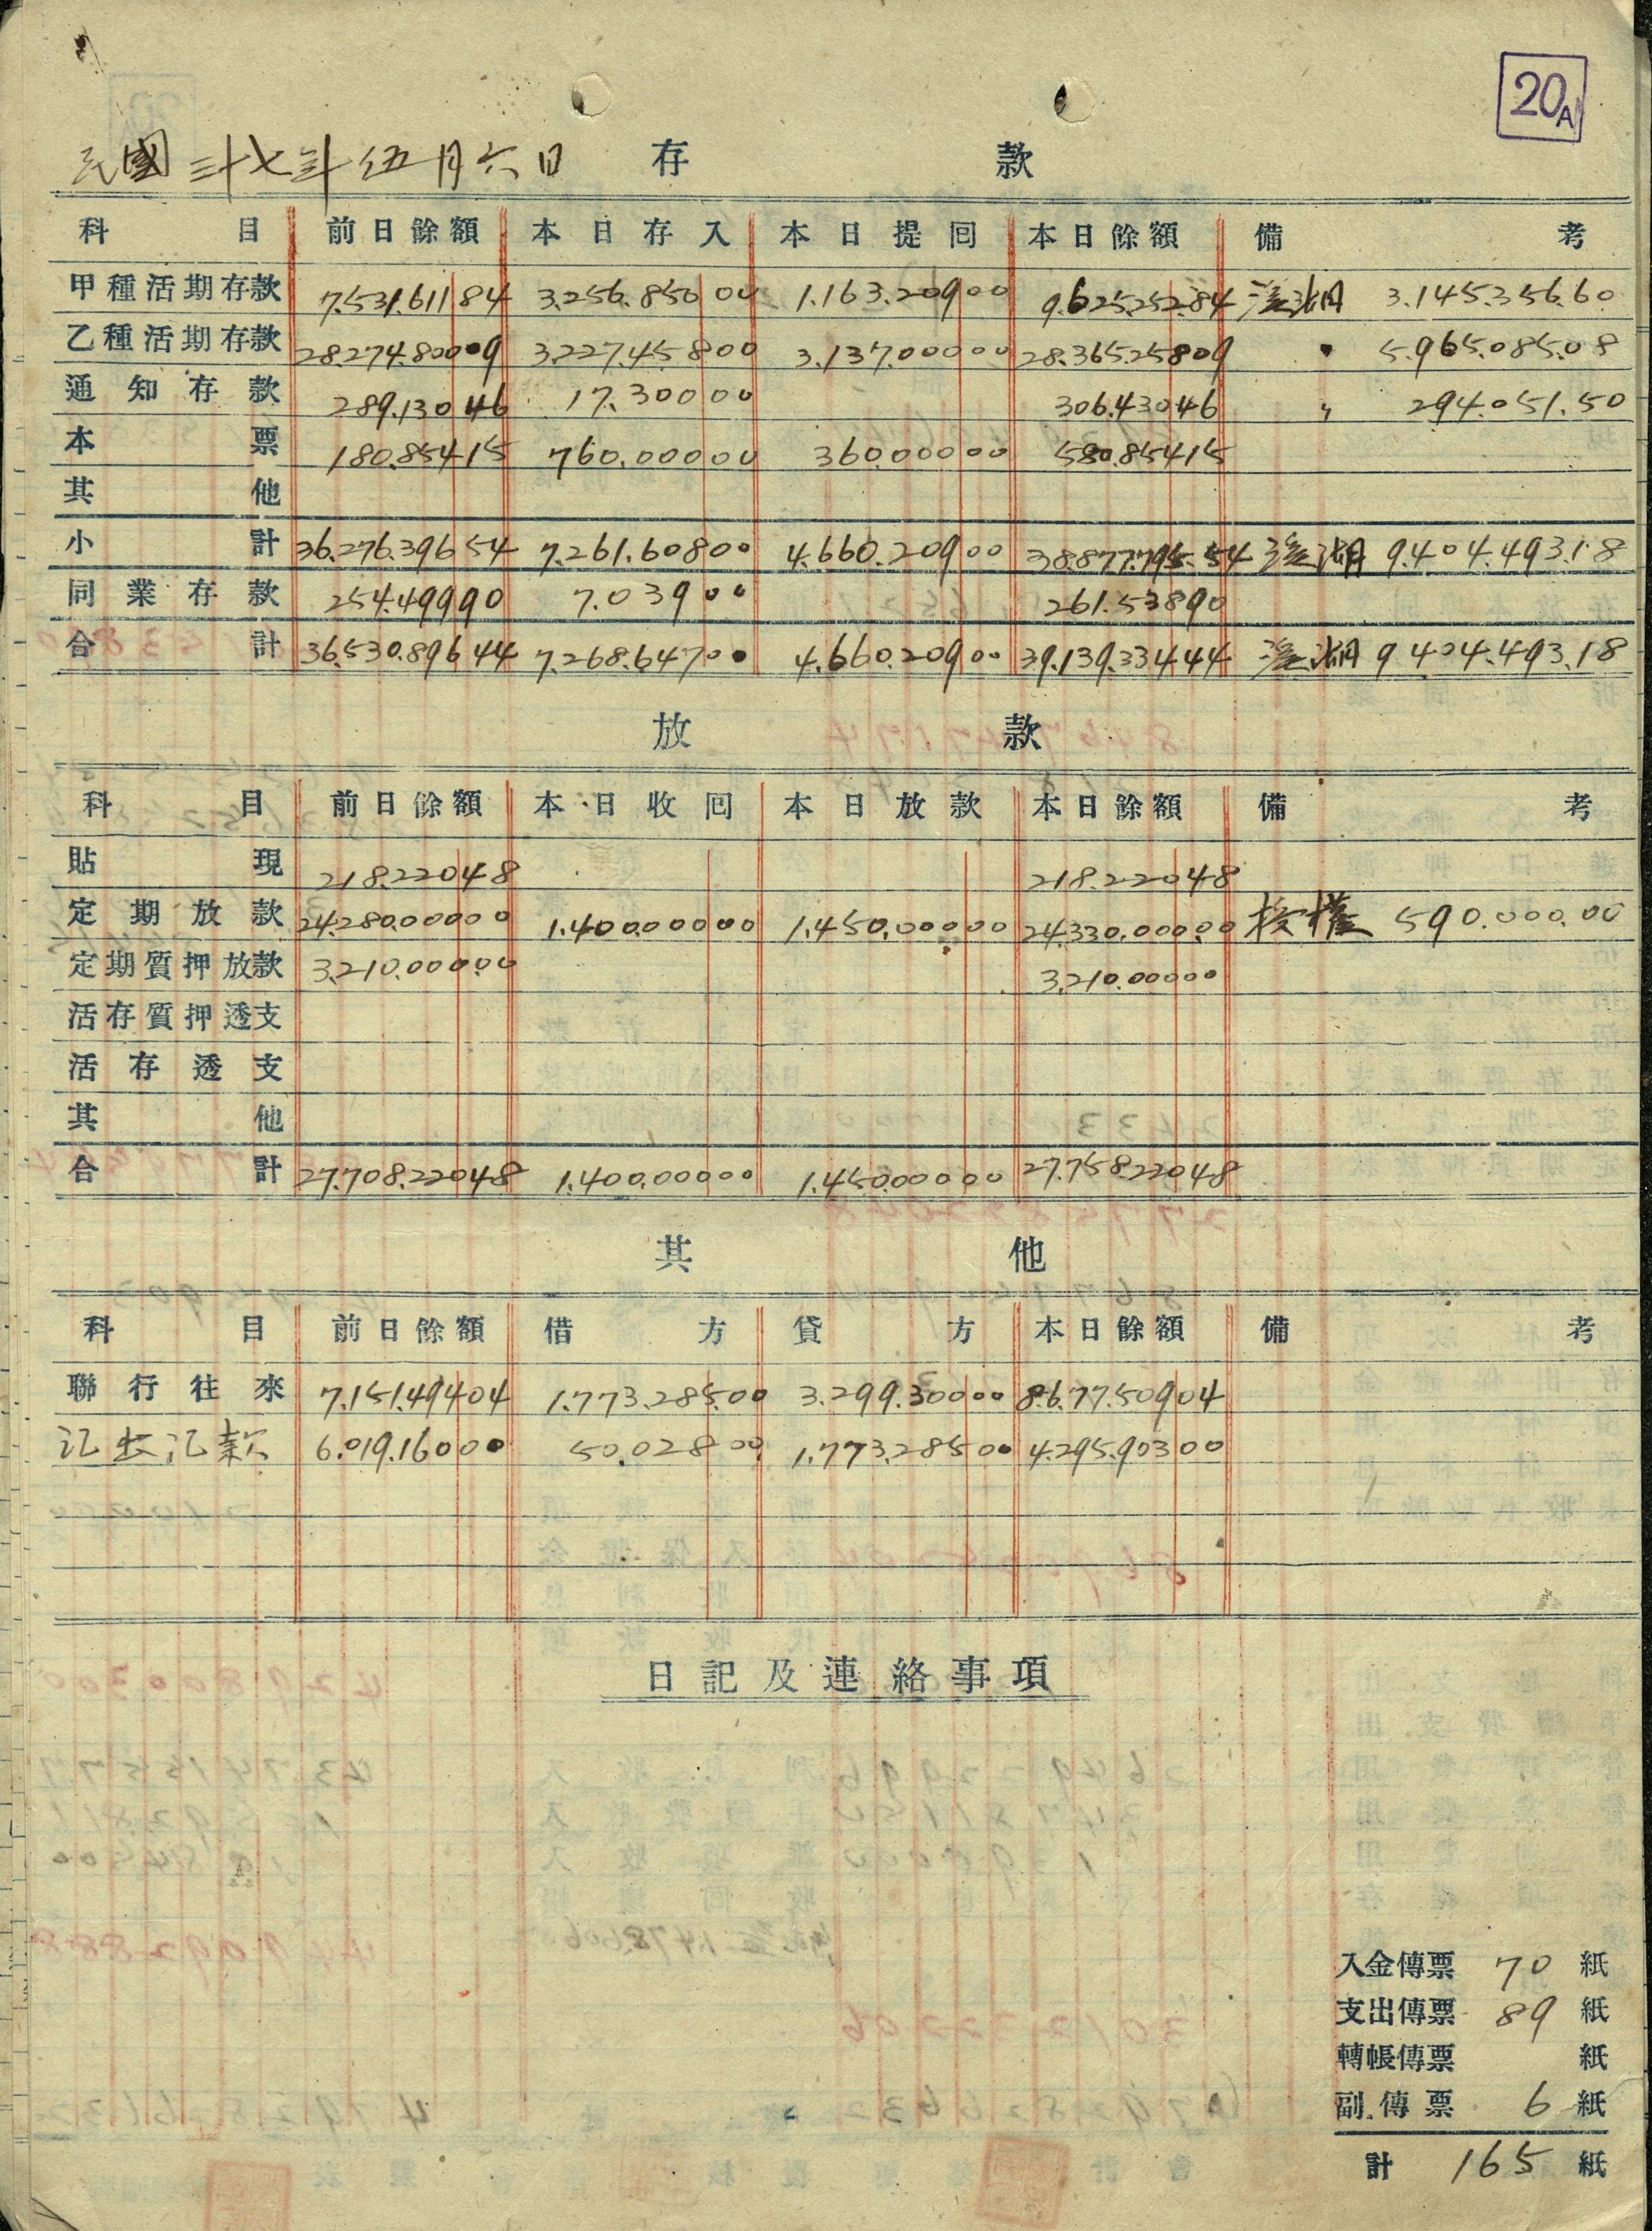 20A
民國三十七年伍月六日 存款
科目 前日餘額 本日存入 本日提回 本日餘額 備考
甲種活期存款 7.531.611 84 3.256.850 00 1.163.209 00 9.625.252.84 溪湖 3.145.356.60
乙種活期存款 28.274.800 09 3.227.458 00 3.137.000 00 28.365.258 09 〃 5.965.085.08
通知存款 289.130 46 17.300 00 306.430 46 〃 294.051.50
本票 180.854 15 760.000 00 360.000 00 580.854 15
其他
小計 36.276.396 54 7.261.608 00 4.660.209 00 38.877.795.54 溪湖 9.404.493.18
同業存款 254.499 90 7.039 00 261.538 90
合計 36.530.896 44 7.268.647 00 4.660.209 00 39.139.334 44 溪湖 9.404.493.18
放款
科目 前日餘額 本日收回 本日放款 本日餘額 備考
貼現 218.220 48 218.220 48
定期放款 24.280.000 00 1.400.000 00 1.450.000 00 24.330.000.00 授權 590.000.00
定期質押放款 3.210.000.00 3.210.000 00
活存質押透支
活存透支
其他
合計 27.708.220 48 1.400.000 00 1.450.000 00 27.758.220 48
其他
科目 前日餘額 借方 貸方 本日餘額 備考
聯行往來 7.151.494 04 1.773.285.00 3.299.300 00 8.677.509 04
汇出汇款 6.019.160 00 50.028 00 1.773.285 00 4.295.903 00
日記及連絡事項
入金傳票 70 紙
支出傳票 89 紙
轉帳傳票 紙
副傳票 6 紙
計 165 紙